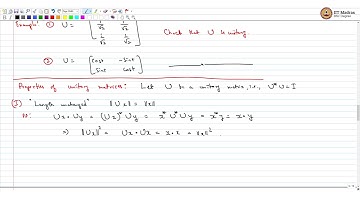 Example: ① U = [ 1/√2 1/√2
1/√2 ] Check that U is unitary.
② U = [ cost -sint
sint cost ]
Properties of unitary matrices: Let U be a unitary matrix, i.e., U*U = I
① "Length unchanged" ‖Ux‖ = ‖x‖
Ux · Uy = (Ux)* Uy = x* U* U y = x* y = x · y
⇒ ‖Ux‖² = Ux · Ux = x · x = ‖x‖²
IIT Madras